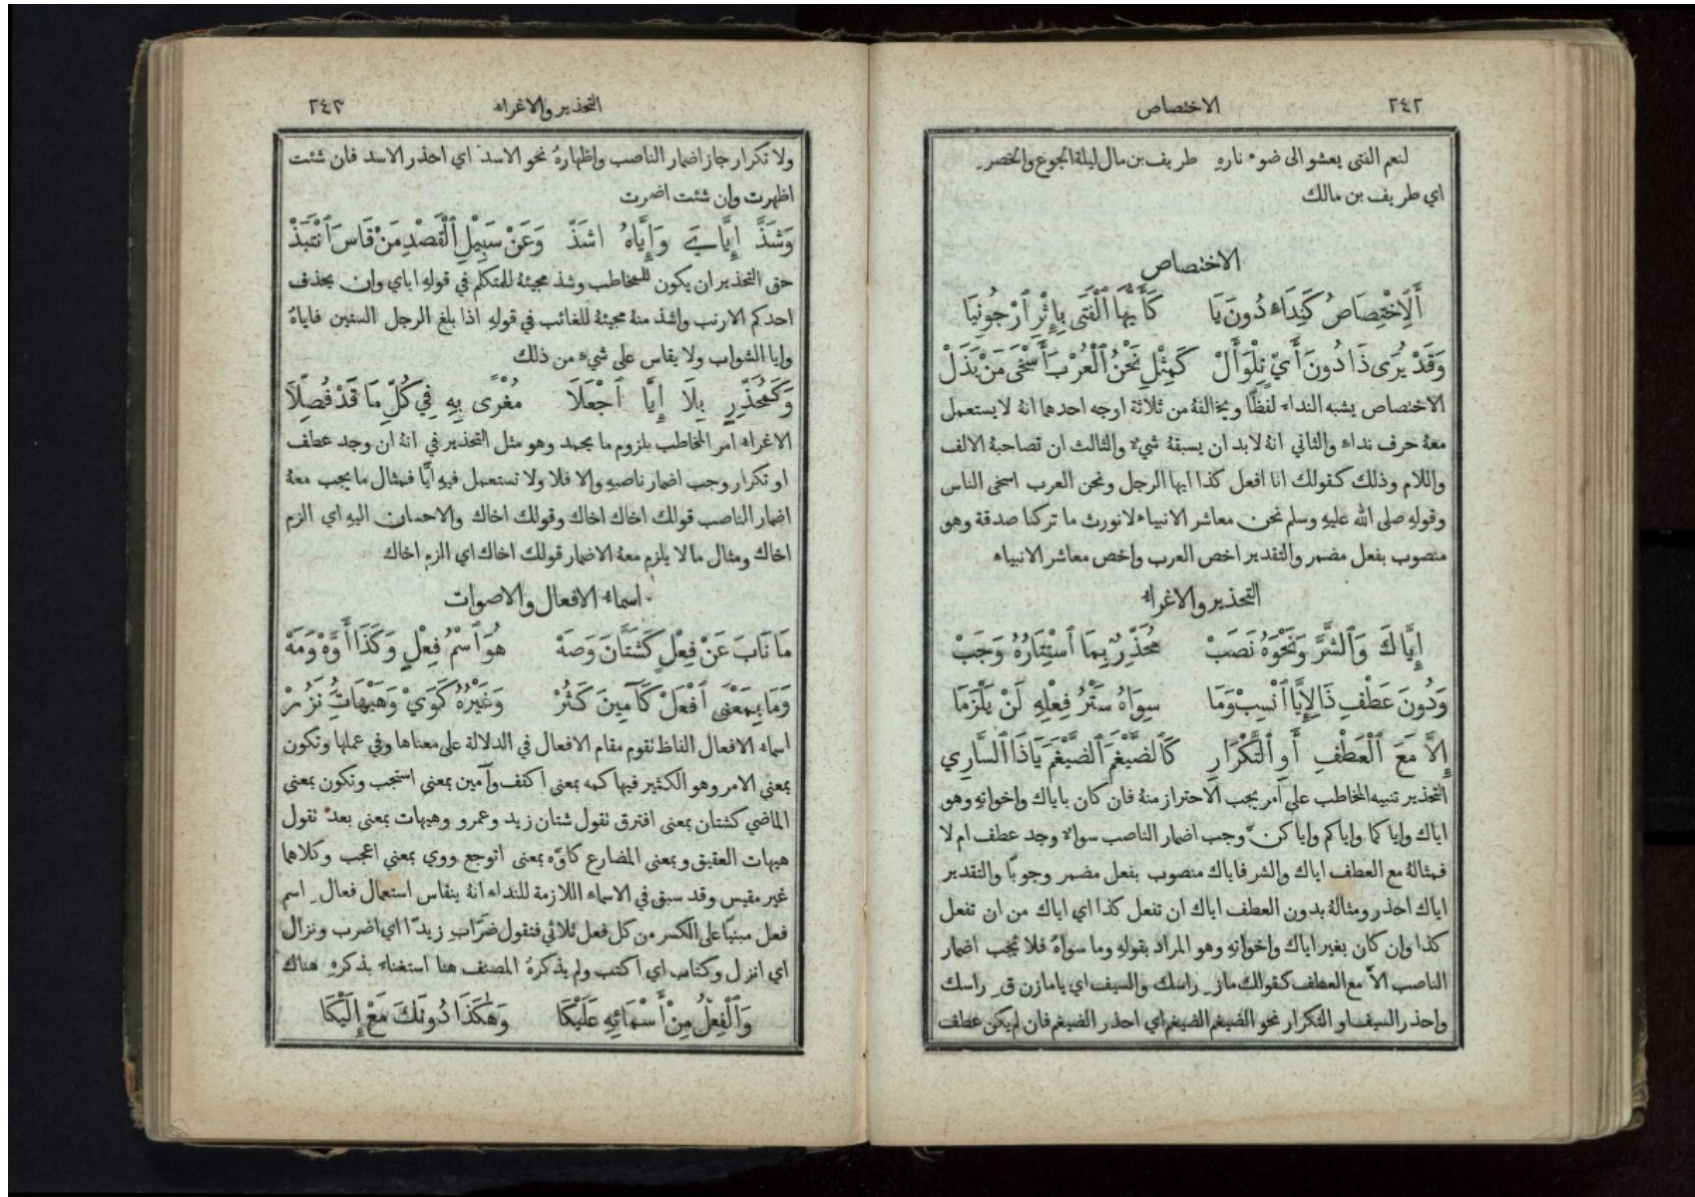 ٢٤٢ الاختصاص
لنعم الفتى يعشو الى ضوء ناره طريف بن مال ليلة الجوع والخصر
اي طريف بن مالك
الاختصاص
أَلِاخْتِصَاصُ كَنِدَاءٍ دُونَ يَا كَأَيُّهَا ٱلْفَتَى بِإِثْرِ ٱرْجُونِيَا
وَقَدْ يُرَى ذَا دُونَ أَيٍّ تِلْوَ أَلْ كَمِثْلِ نَحْنُ ٱلْعُرْبَ أَسْخَى مَنْ بَذَلْ
الاختصاص يشبه النداء لفظًا ويخالفهُ من ثلاثة اوجه احدها انهُ لا يستعمل
معهُ حرف نداء والثاني انهُ لا بد ان يسبقهُ شيء والثالث ان تصاحبهُ الالف
واللام وذلك كقولك انا افعل كذا ايها الرجل ونحن العرب اسخى الناس
وقوله صلى الله عليه وسلم نحن معاشر الانبياء لا نورث ما تركنا صدقة وهو
منصوب بفعل مضمر والتقدير اخص العرب واخص معاشر الانبياء
التحذير والاغراء
إِيَّاكَ وَٱلشَّرَّ وَنَحْوَهُ نَصَبْ مُحَذِّرٌ بِمَا ٱسْتِتَارُهُ وَجَبْ
وَدُونَ عَطْفٍ ذَا لِإِيَّا ٱنْسِبْ وَمَا سِوَاهُ سَتْرُ فِعْلِهِ لَنْ يَلْزَمَا
إِلاَّ مَعَ ٱلْعَطْفِ أَوِ ٱلتَّكْرَارِ كَٱلضَّيْغَمَ ٱلضَّيْغَمَ يَا ذَا ٱلسَّارِي
التحذير تنبيه المخاطب على أمر يجب الاحتراز منهُ فان كان باياك واخواته وهو
اياك واياكما واياكم واياكنّ وجب اضمار الناصب سواء وجد عطف ام لا
فمثالهُ مع العطف اياك والشر فاياك منصوب بفعل مضمر وجوبًا والتقدير
اياك احذر ومثالهُ بدون العطف اياك ان تفعل كذا اي اياك من ان تفعل
كذا وان كان بغير اياك واخواته وهو المراد بقوله وما سواهُ فلا يجب اضمار
الناصب الاّ مع العطف كقولك مازِ راسك والسيف اي يا مازن قِ راسك
واحذر السيف او التكرار نحو الضيغم الضيغم اي احذر الضيغم فان لم يكن عطف
التحذير والاغراء ٢٤٣
ولا تكرار جاز اضمار الناصب واظهارهُ نحو الاسد اي احذر الاسد فان شئت
اظهرت وان شئت اضمرت
وَشَذَّ إِيَّايَ وَإِيَّاهُ اشَذّ وَعَنْ سَبِيلِ ٱلْقَصْدِ مَنْ قَاسَ ٱنْتَبَذْ
حق التحذير ان يكون للمخاطب وشذ مجيئهُ للمتكلم في قوله اياي وان يحذف
احدكم الارنب واشذ منهُ مجيئهُ للغائب في قوله اذا بلغ الرجل الستين فاياهُ
وايا الشواب ولا يقاس على شيء من ذلك
وَكَمُحَذَّرٍ بِلَا إِيَّا ٱجْعَلَا مُغْرًى بِهِ فِي كُلِّ مَا قَدْ فُصِّلَا
الاغراء امر المخاطب بلزوم ما يحمد وهو مثل التحذير في انهُ ان وجد عطف
او تكرار وجب اضمار ناصبه والا فلا ولا تستعمل فيه ايَّا فمثال ما يجب معهُ
اضمار الناصب قولك اخاك اخاك وقولك اخاك والاحسان اليه اي الزم
اخاك ومثال ما لا يلزم معهُ الاضمار قولك اخاك اي الزم اخاك
اسماء الافعال والاصوات
مَا نَابَ عَنْ فِعْلٍ كَشَتَّانَ وَصَهْ هُوَ ٱسْمُ فِعْلٍ وَكَذَا أَوَّهْ وَمَهْ
وَمَا بِمَعْنَى ٱفْعَلْ كَآمِينَ كَثُرْ وَغَيْرُهُ كَوَيْ وَهَيْهَاتَ نَزُرْ
اسماء الافعال الفاظ تقوم مقام الافعال في الدلالة على معناها وفي عملها وتكون
بمعنى الامر وهو الكثير فيها كمه بمعنى اكفف وآمين بمعنى استجب وتكون بمعنى
الماضي كشتان بمعنى افترق تقول شتان زيد وعمرو وهيهات بمعنى بعد تقول
هيهات العقيق وبمعنى المضارع كاوّه بمعنى اتوجع ووي بمعنى اعجب وكلاهما
غير مقيس وقد سبق في الاسماء اللازمة للنداء انهُ ينقاس استعمال فعالِ اسم
فعل مبنيًا على الكسر من كل فعل ثلاثي فتقول ضَرَابِ زيدًا اي اضرب ونزال
اي انزل وكتاب اي اكتب ولم يذكرهُ المصنف هنا استغناء بذكره هناك
وَٱلْفِعْلُ مِنْ أَسْمَائِهِ عَلَيْكَا وَهٰكَذَا دُونَكَ مَعْ إِلَيْكَا